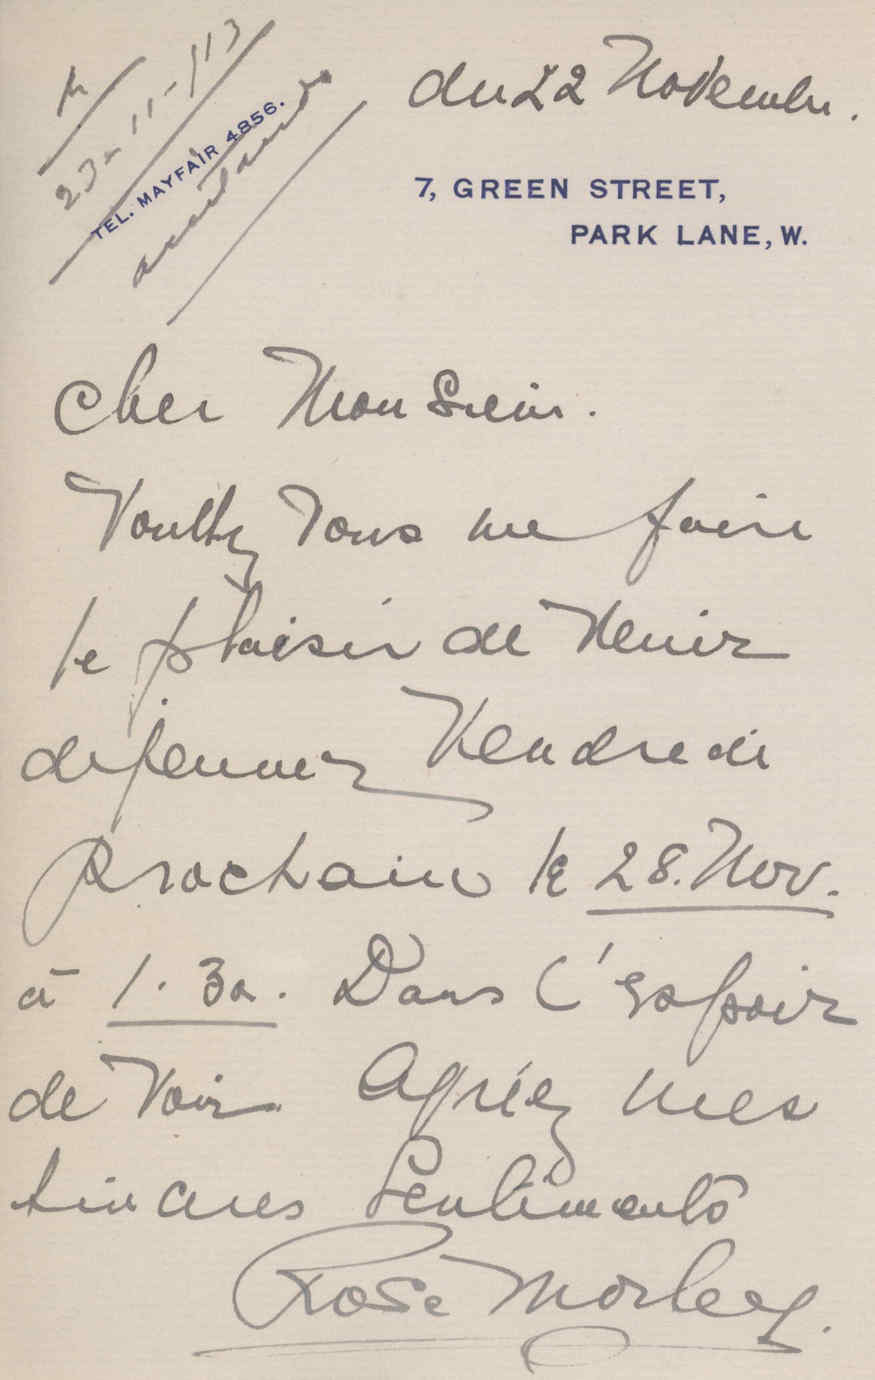 du 22 Novembre.
23-11-13
TEL. MAYFAIR 4856.
7, GREEN STREET,
PARK LANE, W.
Cher Monsieur.
Voullez vous me faire
le plaisir de venir
dejeuner Vendredi
prochain le 28. Nov.
à 1.30. Dans l'espoir
de voir Agréez mes
sinceres sentiments
Rose Morley.